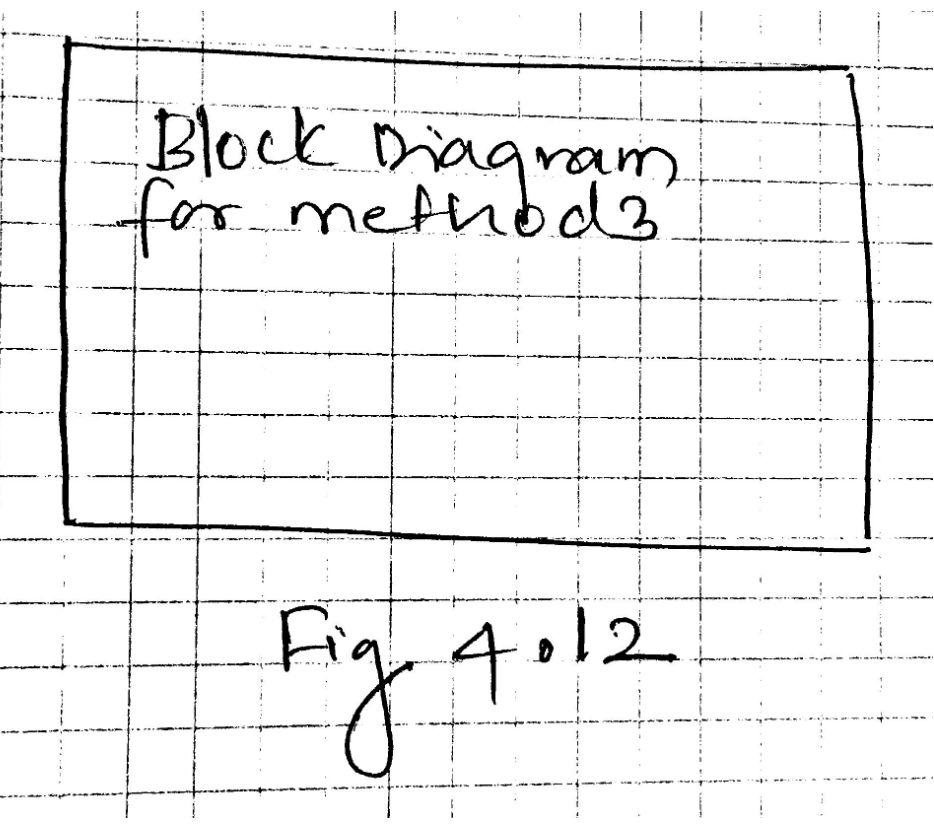 Block Diagram
for method3
Fig. 4.12